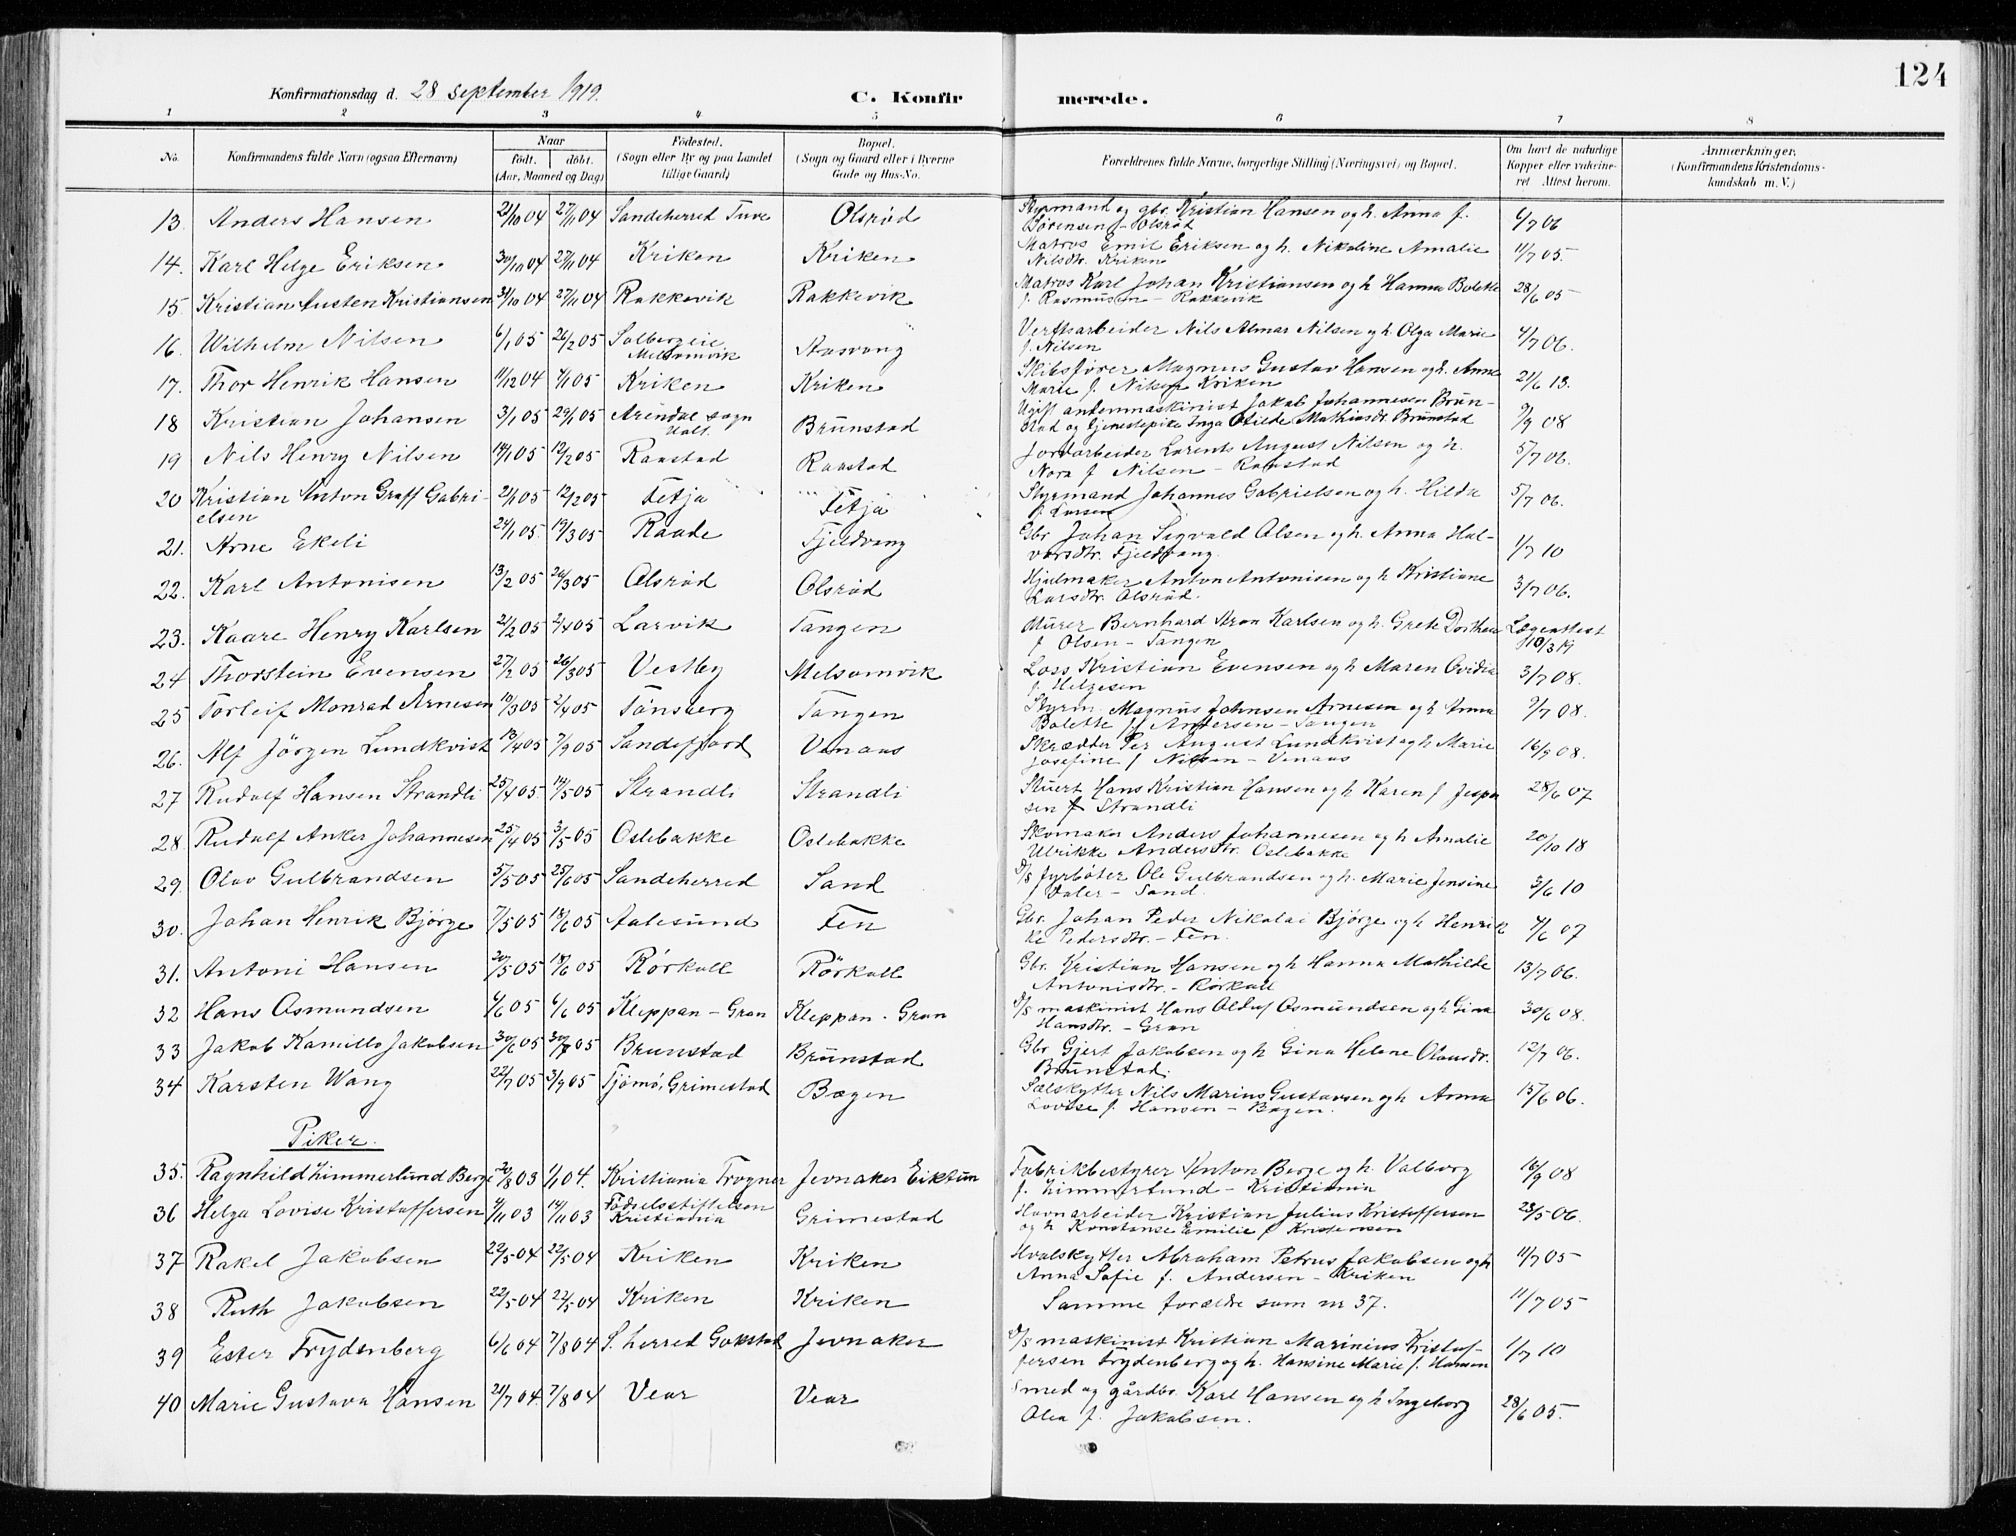 124
Konfirmationsdag d. 28 september 1919.
C. Konfirmerede.
1 2 3 4 5 6 7 8
No. Konfirmandens fulde Navn (ogsaa Efternavn) Naar født. døbt. (Aar, Maaned og Dag) Fødested. (Sogn eller By og paa Landet tillige Gaard) Bopæl. (Sogn og Gaard eller i Byerne Gade og Hus-No. Forældrenes fulde Navne, borgerlige Stilling (Næringsvei) og Bopæl. Om havt de naturlige Kopper eller vaccineret. Attest herom. Anmærkninger. (Konfirmandens Kristendomskundskab m. V.)
13. Anders Hansen 21/10 04 27/11 04 Sandeherred Tuve Olsrød Styrmand og gbr. Kristian Hansen og h. Anna f.
Sørensen - Olsrød 6/7 06
14. Karl Helge Eriksen 30/10 04 27/11 04 Kriken Kriken Matros Emil Eriksen og h. Nikoline Amalie
Nilsdtr. Kriken 11/7 05.
15. Kristian Austen Kristiansen 31/10 04 27/11 04 Rakkevik Rakkevik Matros Karl Johan Kristiansen og h. Hanna Bolette
f. Rasmusen - Rakkevik 28/6 05
16. Wilhelm Nilsen 6/1 05 26/2 05 Solbergeie
Melsomvik Aasvang Verftsarbeider Nils Almar Nilsen og h. Olga Marie
f. Nilsen 4/7 06.
17. Thor Henrik Hansen 11/12 04 7/1 05 Kriken Kriken Skibsfører Magnus Gustav Hansen og h. Anne
Marie f. Kriken 21/6 13.
18 Kristian Johansen 3/1 05 29/1 05 Arendal sogn Brunstad Ugift andenmaskinist Jakob Johannesen Brun-
stad og tjenestepike Inga Otilde Mathiasdt. Brunstad 9/9 08
19 Nils Henry Nilsen 14/1 05 12/2 05 Raastad Raastad Jordarbeider Lorents August Nilsen og h.
Nora f. Nilsen - Raastad 5/7 06.
20 Kristian Anton Graff Gabri-
elsen 21/1 05 12/2 05 Tetja Tetja Styrmand Johannes Gabrielsen og h. Hilda
f. Larsen 5/7 06.
21. Arne Ekeli 24/1 05. 19/3 05 Raade Fjeldvang Gbr Johan Sigvald Olsen og h. Anna Hal-
vorsdtr. Fjeldvang. 1/7 10
22. Karl Antonisen 13/2 05 26/3 05 Olsrød Olsrød Hjulmaker Anton Antonisen og h Kristiane
Larsdtr. Olsrød. 3/7 06.
23. Kaare Henry Karlsen 21/2 05 2/4 05 Larvik Tangen Murer Bernhard Aron Karlsen og h. Grete Dorthea
f Olsen - Tangen Lægeattest
10/3 19
24 Thorstein Evensen 27/2 05 26/3 05 Vestby Melsomvik Loss Kristian Evensen og h Maren Ovidia
f. Helgesen 3/7 08.
25 Torleif Monrad Arnesen 10/3 05 2/4 05 Tønsberg Tangen Styrm. Magnus Johnsen Arnesen og h Anna
Bolette f. Andersen - Tangen 9/7 08.
26. Alf Jörgen Lundkvist 13/4 05 7/9 05 Sandefjord Vinaas Skrædder Per August Lundkvist og h Marie
Josefine f Nilsen - Vinaas 16/9 08.
27 Rudolf Hansen Strandli 25/4 05. 14/5 05 Strandli Strandli Stuert Hans Kristian Hansen og h Karen f Jesper
sen f Strandli 28/6 07
28. Rudolf Anker Johannesen 25/4 05 3/5 05 Oslebakke Oslebakke Skomaker Anders Johannesen og h Amalie
Ulrikke Andersdtr. Oslebakke 20/10 18
29. Olav Gulbrandsen 5/5 05 25/6 05 Sandeherred Sand D/s fyrbøter Ole Gulbrandsen og h. Marie Jensine
Valer - Sand. 3/6 10
30. Johan Henrik Bjørge 7/5 05 18/6 05 Aalesund Fen Gbr. Johan Peder Nikolai Bjørge og h Henrik
ke Pedersdtr. - Fen 4/6 07
31. Antoni Hansen 20/5 05 18/6 05 Rørkoll Rörkoll Gbr. Kristian Hansen og h Hanna Mathilde
Antonisdtr. - Rörkoll 13/7 06.
32 Hans Osmundsen 6/6 05 6/6 05 Kleppan - Gran Kleppan. Gran D/s maskinist Hans Oluf Osmundsen og h Gina
Hansdtr. - Gran 30/6 08.
33 Jakob Kamillo Jakobsen 30/6 05 30/7 05 Brunstad Brunstad Gbr Gjert Jakobsen og h Gina Helene Olausdt.
Brunstad. 12/7 06.
34 Karsten Wang 22/7 05 3/9 05 Tjömö, Grimestad Bogen Sælskytter Nils Marius Gustavsen og h Anna
Lovise f. Hansen - Bogen. 15/6 06.
Piker.
35. Ragnhild Zimmerlund Berge 20/8 03 1/1 04. Kristiania Frogner Jevnaker Eiktun Fabrikbestyrer Anton Berge og h. Valborg
f. Zimmerlund - Kristiania 16/9 08
36 Helga Lovise Kristoffersen 4/11 03 14/11 03 Fødselsstiftelsen
Kristiania Grimestad Havnarbeider Kristian Julius Kristoffersen
og h Konstanse Emilie f Kristensen 23/5 06.
37 Rakel Jakobsen 22/5 04 22/5 04 Kriken Kriken Hvalskytter Abraham Petrus Jakobsen og h
Anna Sofie f. Andersen - Kriken 11/7 05
38 Ruth Jakobsen 22/5 04 22/5 04 Kriken Kriken Samme forældre som nr 37. 11/7 05
39 Ester Frydenberg 6/6 04 7/8 04 S. herred Gokstad Jevnaker D/s maskinist Kristian Marinius Kristof-
fersen Frydenberg og h. Hansine Marie f. Hansen 1/7 10
40 Marie Gustava Hansen 21/7 04. 7/8 04 Vear Vear Smed og gårdbr. Karl Hansen og h Ingeborg
Olea f. Jakobsen. 28/6 05.